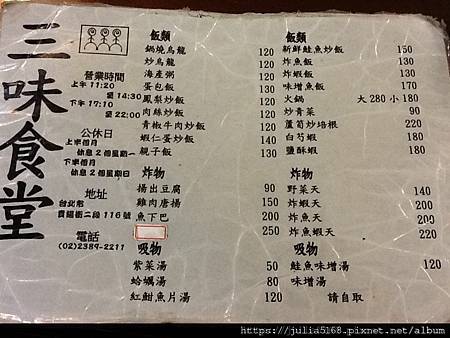 三味食堂
營業時間
上午 11:20
至 14:30
下午 17:10
至 22:00
公休日
上半個月
休息 2 個星期一
下半個月
休息 2 個星期日
地址
台北市
貴陽街二段 116 號
電話
(02)2389-2211
飯類
鍋燒烏龍 120
炒烏龍 120
海產粥 120
蛋包飯 120
鳳梨炒飯 120
肉絲炒飯 120
青椒牛肉炒飯 120
蝦仁蛋炒飯 120
親子飯 130
炸物
揚出豆腐 90
雞肉唐揚 150
魚下巴 200
250
吸物
紫菜湯 50
蛤蠣湯 80
紅魽魚片湯 120
飯類
新鮮鮭魚炒飯 150
炸魚飯 130
炸蝦飯 130
味增魚飯 170
火鍋 大 280 小 180
炒青菜 90
蘆筍炒培根 220
白芍蝦 180
鹽酥蝦 180
炸物
野菜天 140
炸蝦天 200
炸魚天 200
炸魚蝦天 220
吸物
鮭魚味增湯 120
味增湯 請自取
https://julia5168.pixnet.net/album